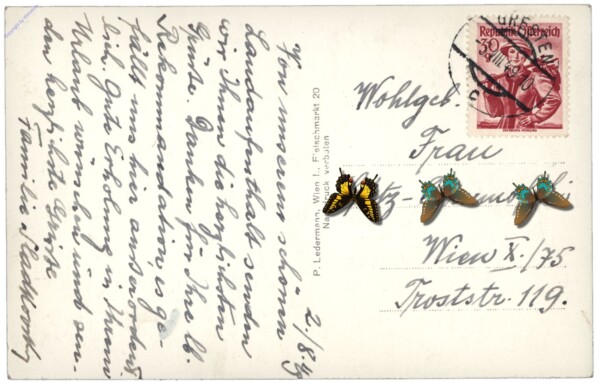 2/8.49
Von unserem schönen
Landaufenthalt senden
wir Ihnen die herzlichsten
Grüße. Danken für Ihre lb.
Rekommandation, es ge-
fällt uns hier außerordent-
lich. Gute Erholung in Ihrem
Urlaub wünschen und sen-
den herzlichste Grüße
Familie
P. Ledermann, Wien I., Fleischmarkt 20
Nachdruck verboten
GRESTEN
Republik Österreich
30
Wohlgeb.
Frau
Wien X./75
Troststr. 119.